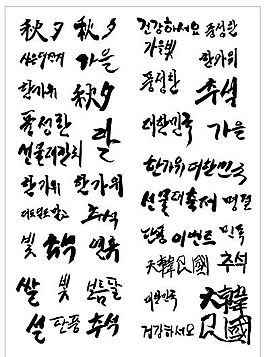 秋夕 秋夕
가을
한가위 秋夕
풍성한 달
선물대잔치
한가위 한가위
추석
빛 연휴
쌀 빛 보름달
설 단풍 추석
건강하세요 풍성한
가을빛 한가위
풍성한 추석
대한민국 가을
한가위 대한민국
선물대축제 명절
단풍 이벤트 민속
大韓民國 추석
대한민국 大韓民國
건강하세요